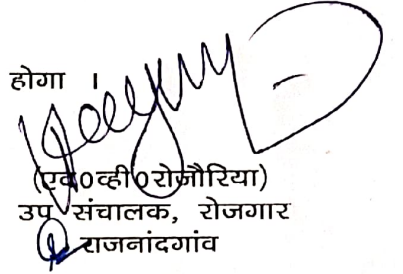 होगा ।
(एच0व्ही0रोजौरिया)
उप संचालक, रोजगार
राजनांदगांव